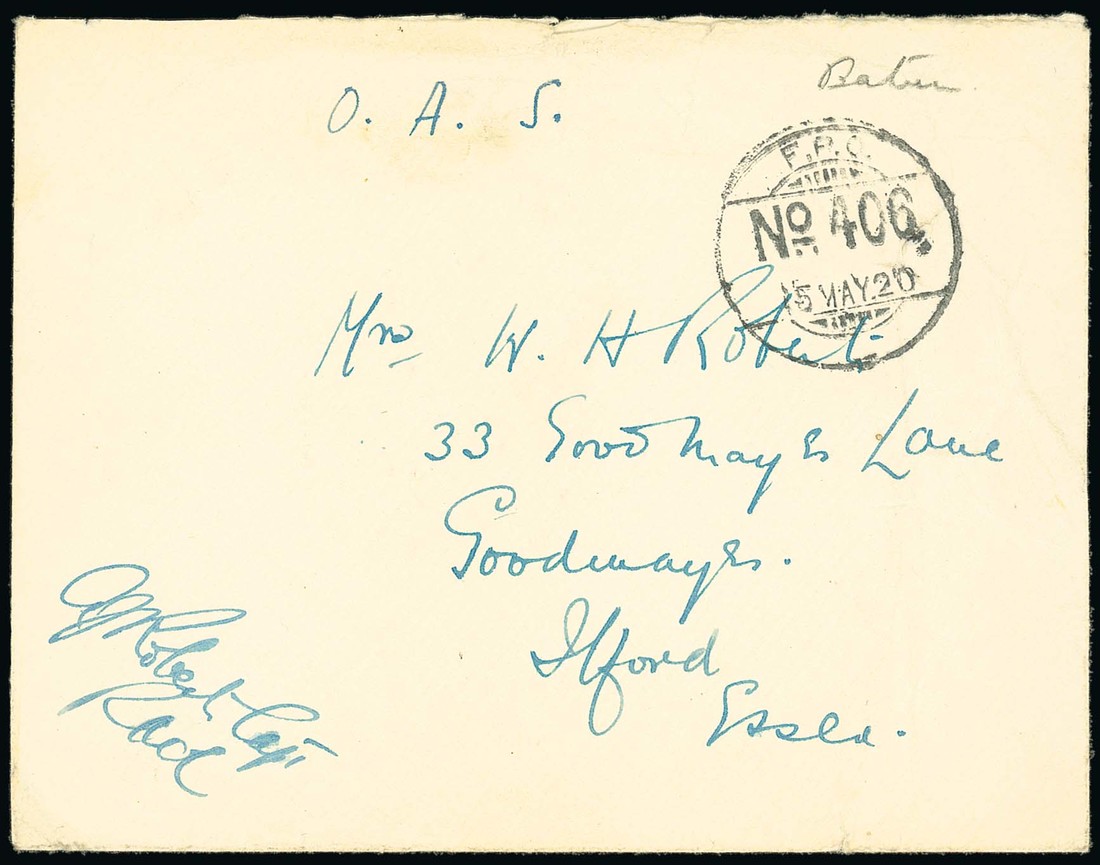 O. A. S.
Batum
F.P.O.
No 406
5 MAY.20
Mrs W. H Roberts
33 Goodmayes Lane
Goodmayes.
Ilford
Essex.
Roberts Capt